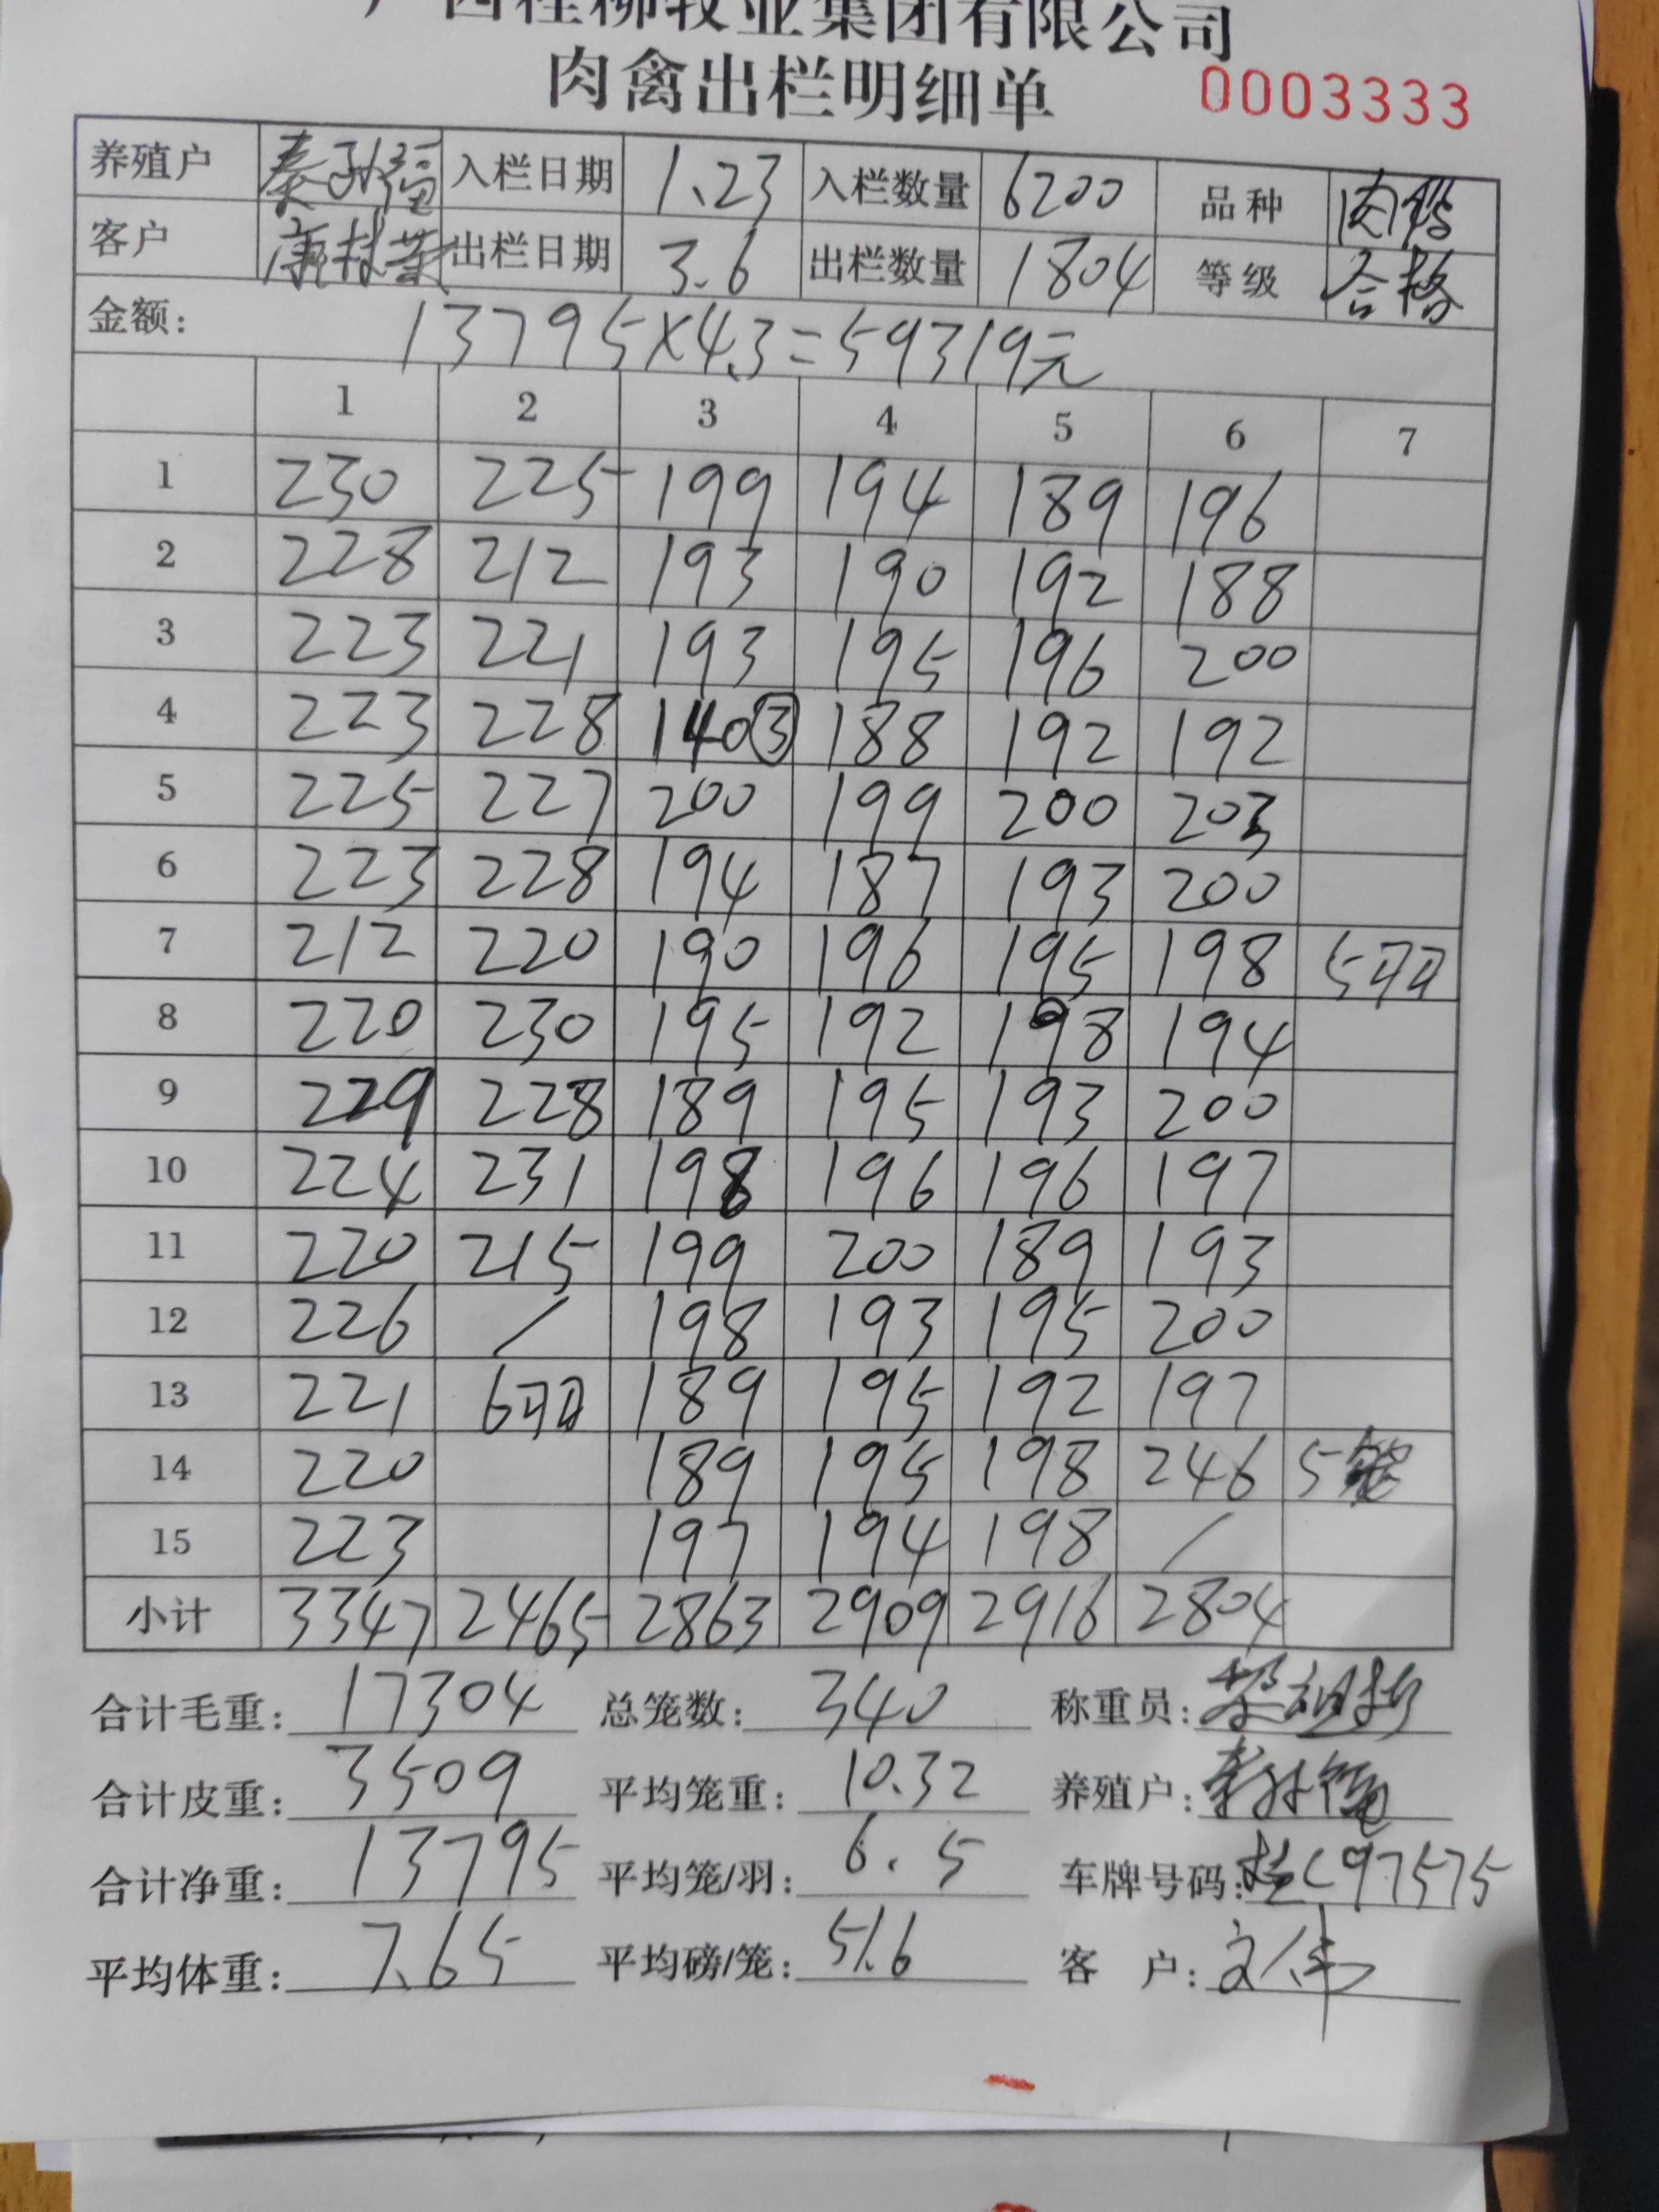 广西桂柳牧业集团有限公司
肉禽出栏明细单 0003333
养殖户 入栏日期 1.23 入栏数量 6200 品种 肉鸭
客户 出栏日期 3.6 出栏数量 1804 等级 合格
金额: 13795×4.3=59319元
1 2 3 4 5 6 7
1 230 225 199 194 189 196
2 228 212 193 190 192 188
3 223 221 193 195 196 200
4 223 228 140③ 188 192 192
5 225 227 200 199 200 203
6 223 228 194 187 193 200
7 212 220 190 196 195 198 5羽
8 220 230 195 192 198 194
9 229 228 189 195 193 200
10 224 231 198 196 196 197
11 220 215 199 200 189 193
12 226 / 198 193 195 200
13 221 6羽 189 195 192 197
14 220 189 195 198 246 5笼
15 223 197 194 198 /
小计 3347 2465 2863 2909 2916 2804
合计毛重: 17304 总笼数: 340 称重员:
合计皮重: 3509 平均笼重: 10.32 养殖户:
合计净重: 13795 平均笼/羽: 6.5 车牌号码: 桂C97575
平均体重: 7.65 平均磅/笼: 51.6 客 户: 文伟